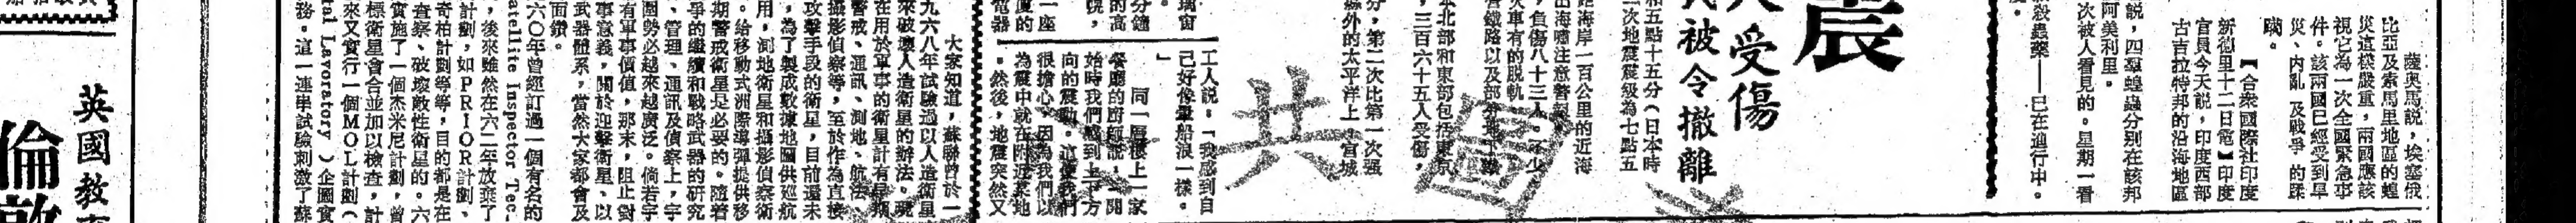 薩奧馬説，埃塞俄
比亞及索馬里地區的蝗
災這樣嚴重，兩國應該
視它為一次全國緊急事
件。該兩國已經受到旱
災、内亂 及戰爭 的蹂
躪。
【合衆國際社印度
新德里十二日電】印度
官員今天説，印度西部
古吉拉特邦的沿海地區
説，四羣蝗蟲分别在該邦
阿美利里。
次被人看見的。星期一看
殺蟲藥——已在進行中。
震
人受傷
被令撤離
和五點十五分（日本時
次地震震級為七點五
距海岸一百公里的近海
出海嘯注意警報
，負傷八十三人，不少
火車有的脱軌
營鐵路以及部分地下鐵
本北部和東部包括東京
，三百六十五人受傷，
分，第二次比第一次强
縣外的太平洋上（宮城
工人説：「我感到自
己好像暈船浪一樣。
」
同一層樓上一家
餐廳的厨師説：「開
始時我們感到上下方
向的震動。這使我們
很擔心，因為我們以
為震中就在附近某地
。然後，地震突然又
大家知道，蘇聯曾於一
九六八年試驗過以人造衛星
來破壞人造衛星的辦法。現
在用於軍事的衛星計有早期
警戒、通訊、測地、航法、
攝影偵察等，至於作為直接
攻擊手段的衛星，目前還未
，為了製成數據地圖供巡航
用，測地衛星和攝影偵察衛
。給移動式洲際導彈提供移
期警戒衛星是必要的。隨着
爭的繼續和戰略武器的研究
、管理、通訊及偵察上，宇
圍勢必越來越廣泛。倘若宇
有軍事價值，那末，阻止對
事意義，關於迎擊衛星、以
武器體系，當然大家都會及
面鑽。
六〇年曾經訂過一個有名的
atellite Inspector Tec.
，後來雖然在六二年放棄了
計劃，如PRIOR計劃、
奇柏計劃等等，目的都是在
查察、破壞敵性衛星的。六
實施了一個杰米尼計劃，曾
標衛星會合並加以檢查，計
來又實行一個MOL計劃（
tal Lavoratory）企圖實
務。這一連串試驗刺激了蘇
英國教
倫敦